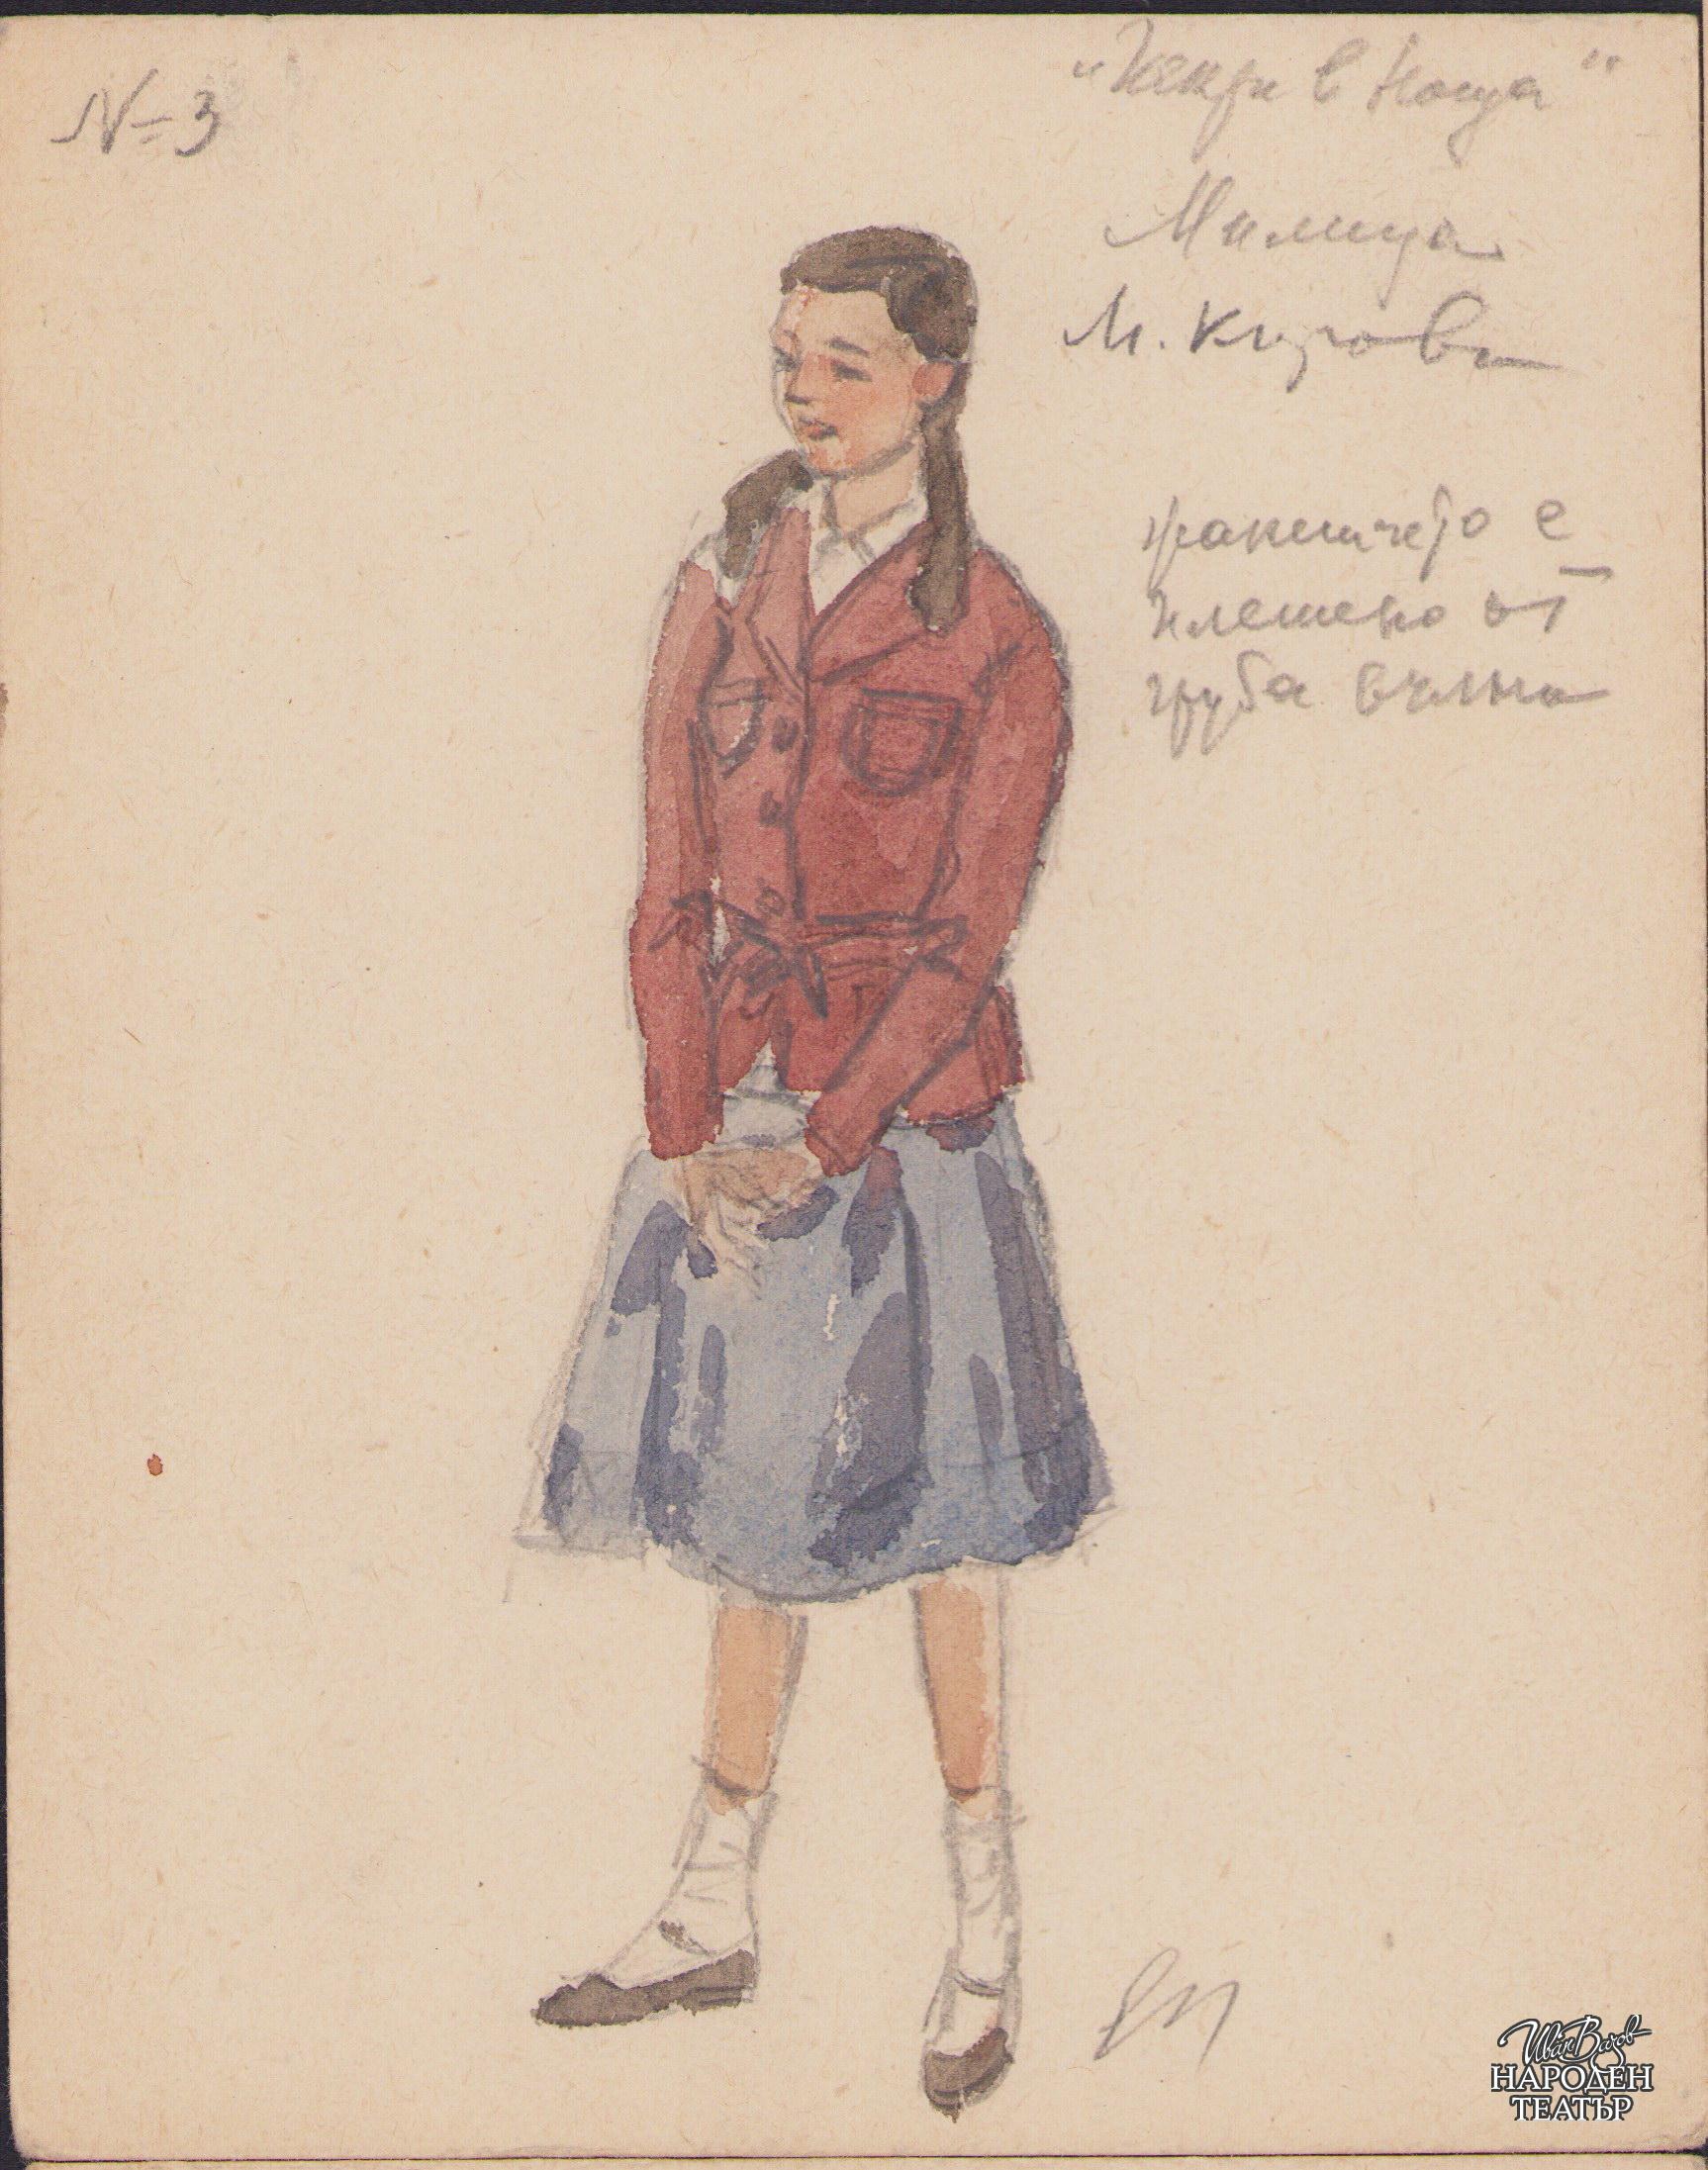 №3
"Искри в нощта"
Милица
М. Кирова
жакетчето е
плетено от
груба вълна
ЕП
Иван Вазов
НАРОДЕН
ТЕАТЪР